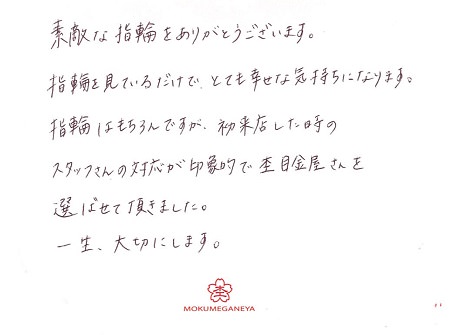 素敵な指輪をありがとうございます。
指輪を見ているだけで、とても幸せな気持ちになります。
指輪はもちろんですが、初来店した時の
スタッフさんの対応が印象的で杢目金屋さんを
選ばせて頂きました。
一生、大切にします。
杢
MOKUMEGANEYA